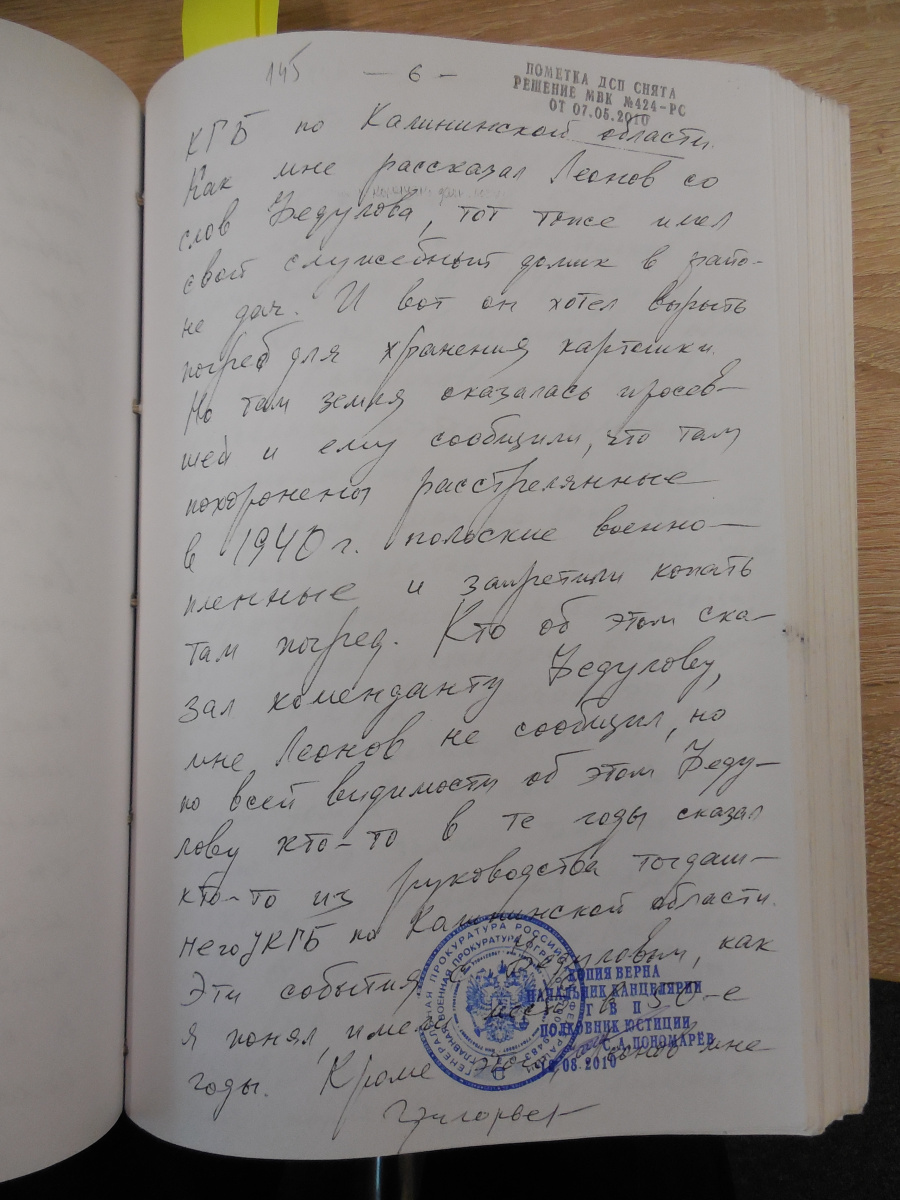 145
- 6 -
ПОМЕТКА ДСП СНЯТА
РЕШЕНИЕ МВК №424-РС
ОТ 07.05.2010
КГБ по Калининской области.
Как мне рассказал Леонов со
слов Бедулова, тот тоже имел
свой служебный домик в райо-
не дач. И вот он хотел вырыть
погреб для хранения картошки.
Но там земля оказалась просев-
шей и ему сообщили, что там
похоронены расстрелянные
в 1940 г. польские военно-
пленные и запретили копать
там погреб. Кто об этом ска-
зал коменданту Бедулову,
мне Леонов не сообщил, но
по всей видимости об этом Беду-
лову кто-то в те годы сказал
кто-то из руководства тогдаш-
него УКГБ по Калининской области.
Эти события с Бедуловым, как
я понял, имели место в 50-е
годы. Кроме этого Леонов мне
КОПИЯ ВЕРНА
НАЧАЛЬНИК КАНЦЕЛЯРИИ
Г В П
ПОЛКОВНИК ЮСТИЦИИ
С.А. ПОНОМАРЕВ
08.2010
ГЕНЕРАЛЬНАЯ ПРОКУРАТУРА РОССИЙСКОЙ ФЕДЕРАЦИИ
ГЛАВНАЯ ВОЕННАЯ ПРОКУРАТУРА